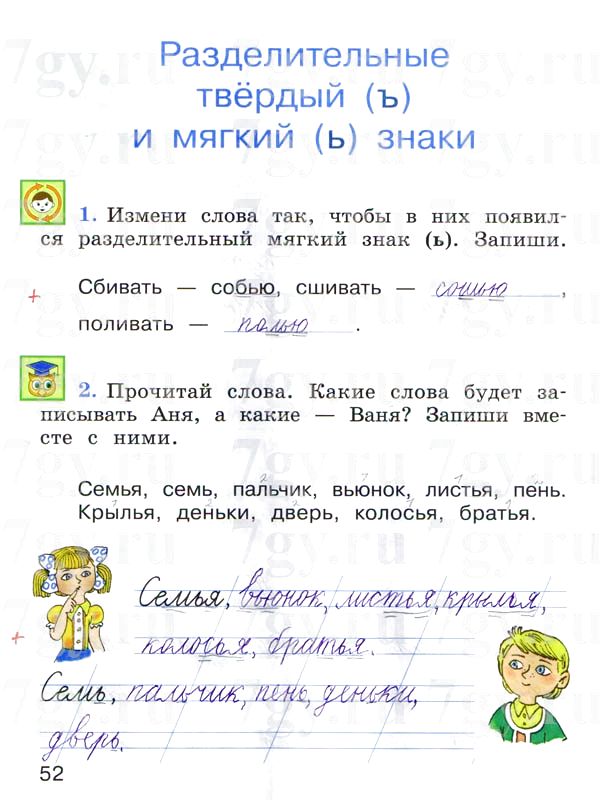 Разделительные
твёрдый (ъ)
и мягкий (ь) знаки
1. Измени слова так, чтобы в них появил-
ся разделительный мягкий знак (ь). Запиши.
Сбивать — собью, сшивать — сошью,
поливать — полью.
2. Прочитай слова. Какие слова будет за-
писывать Аня, а какие — Ваня? Запиши вме-
сте с ними.
Семья, семь, пальчик, вьюнок, листья, пень.
Крылья, деньки, дверь, колосья, братья.
Семья, вьюнок, листья, крылья,
колосья, братья.
Семь, пальчик, пень, деньки,
дверь.
52